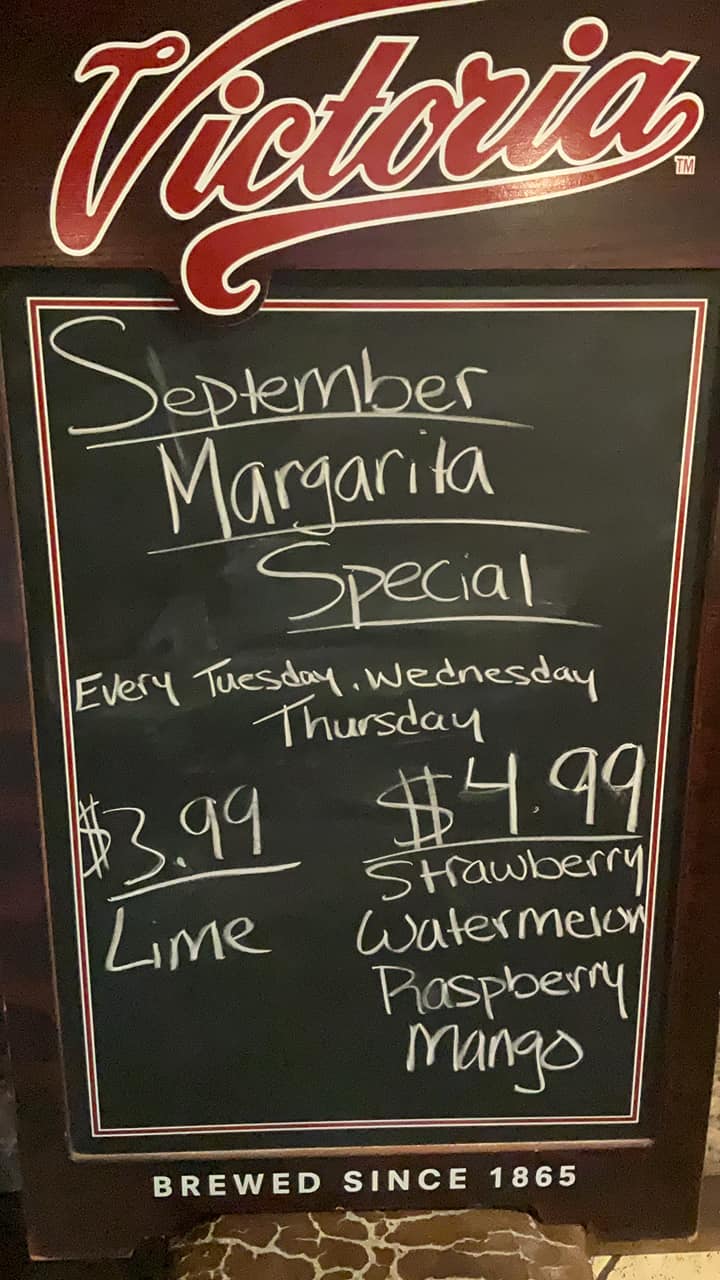 Victoria TM
September
Margarita
Special
Every Tuesday, Wednesday
Thursday
$3.99
Lime
$4.99
Strawberry
Watermelon
Raspberry
Mango
BREWED SINCE 1865